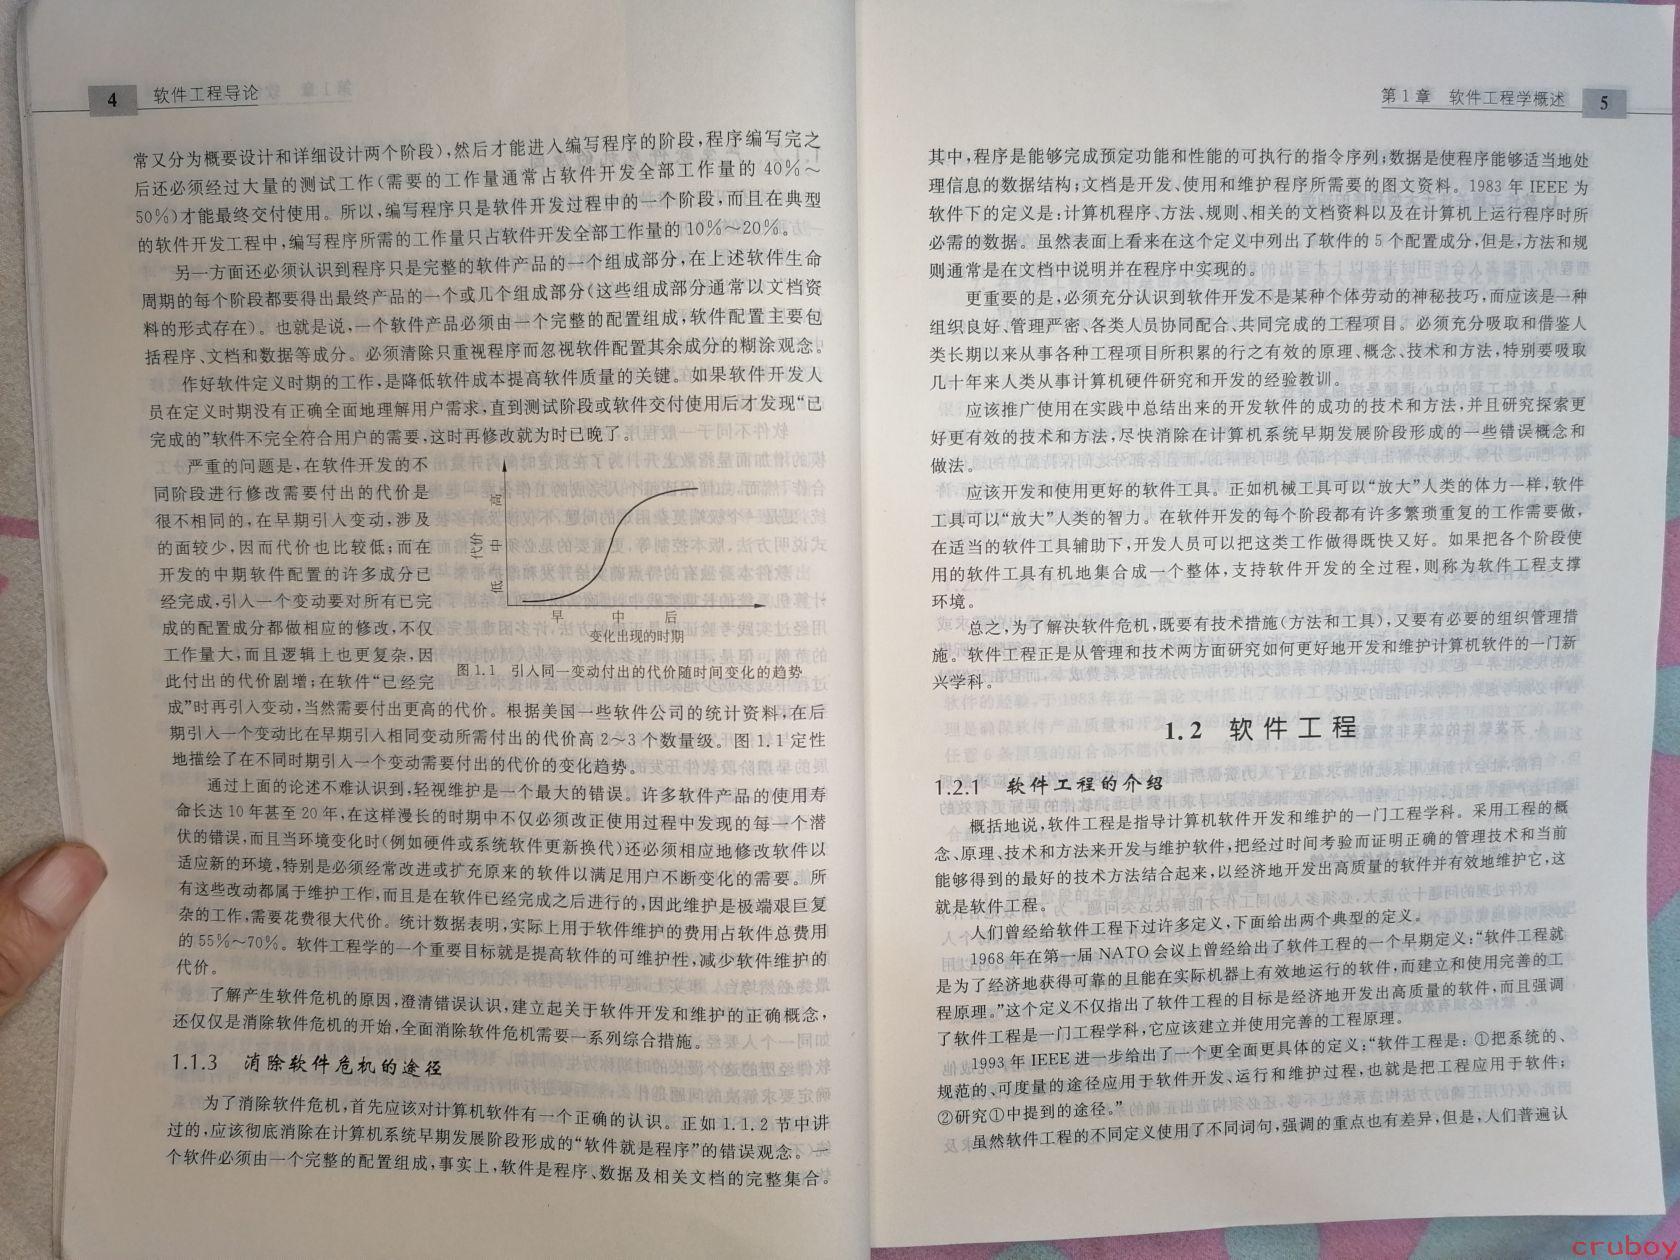 4 软件工程导论
常又分为概要设计和详细设计两个阶段),然后才能进入编写程序的阶段,程序编写完之
后还必须经过大量的测试工作(需要的工作量通常占软件开发全部工作量的 40%～
50%)才能最终交付使用。所以,编写程序只是软件开发过程中的一个阶段,而且在典型
的软件开发工程中,编写程序所需的工作量只占软件开发全部工作量的 10%～20%。
另一方面还必须认识到程序只是完整的软件产品的一个组成部分,在上述软件生命
周期的每个阶段都要得出最终产品的一个或几个组成部分(这些组成部分通常以文档资
料的形式存在)。也就是说,一个软件产品必须由一个完整的配置组成,软件配置主要包
括程序、文档和数据等成分。必须清除只重视程序而忽视软件配置其余成分的糊涂观念。
作好软件定义时期的工作,是降低软件成本提高软件质量的关键。如果软件开发人
员在定义时期没有正确全面地理解用户需求,直到测试阶段或软件交付使用后才发现“已
完成的”软件不完全符合用户的需要,这时再修改就为时已晚了。
严重的问题是,在软件开发的不
同阶段进行修改需要付出的代价是
很不相同的,在早期引入变动,涉及
的面较少,因而代价也比较低;而在
开发的中期软件配置的许多成分已
经完成,引入一个变动要对所有已完
成的配置成分都做相应的修改,不仅
工作量大,而且逻辑上也更复杂,因
此付出的代价剧增;在软件“已经完
高
中
低
代价
早 中 后
变化出现的时期
图 1.1 引入同一变动付出的代价随时间变化的趋势
成”时再引入变动,当然需要付出更高的代价。根据美国一些软件公司的统计资料,在后
期引入一个变动比在早期引入相同变动所需付出的代价高 2～3 个数量级。图 1.1 定性
地描绘了在不同时期引入一个变动需要付出的代价的变化趋势。
通过上面的论述不难认识到,轻视维护是一个最大的错误。许多软件产品的使用寿
命长达 10 年甚至 20 年,在这样漫长的时期中不仅必须改正使用过程中发现的每一个潜
伏的错误,而且当环境变化时(例如硬件或系统软件更新换代)还必须相应地修改软件以
适应新的环境,特别是必须经常改进或扩充原来的软件以满足用户不断变化的需要。所
有这些改动都属于维护工作,而且是在软件已经完成之后进行的,因此维护是极端艰巨复
杂的工作,需要花费很大代价。统计数据表明,实际上用于软件维护的费用占软件总费用
的 55%～70%。软件工程学的一个重要目标就是提高软件的可维护性,减少软件维护的
代价。
了解产生软件危机的原因,澄清错误认识,建立起关于软件开发和维护的正确概念,
还仅仅是消除软件危机的开始,全面消除软件危机需要一系列综合措施。
1.1.3 消除软件危机的途径
为了消除软件危机,首先应该对计算机软件有一个正确的认识。正如 1.1.2 节中讲
过的,应该彻底消除在计算机系统早期发展阶段形成的“软件就是程序”的错误观念。一
个软件必须由一个完整的配置组成,事实上,软件是程序、数据及相关文档的完整集合。
第 1 章 软件工程学概述 5
其中,程序是能够完成预定功能和性能的可执行的指令序列;数据是使程序能够适当地处
理信息的数据结构;文档是开发、使用和维护程序所需要的图文资料。1983 年 IEEE 为
软件下的定义是:计算机程序、方法、规则、相关的文档资料以及在计算机上运行程序时所
必需的数据。虽然表面上看来在这个定义中列出了软件的 5 个配置成分,但是,方法和规
则通常是在文档中说明并在程序中实现的。
更重要的是,必须充分认识到软件开发不是某种个体劳动的神秘技巧,而应该是一种
组织良好、管理严密、各类人员协同配合、共同完成的工程项目。必须充分吸取和借鉴人
类长期以来从事各种工程项目所积累的行之有效的原理、概念、技术和方法,特别要吸取
几十年来人类从事计算机硬件研究和开发的经验教训。
应该推广使用在实践中总结出来的开发软件的成功的技术和方法,并且研究探索更
好更有效的技术和方法,尽快消除在计算机系统早期发展阶段形成的一些错误概念和
做法。
应该开发和使用更好的软件工具。正如机械工具可以“放大”人类的体力一样,软件
工具可以“放大”人类的智力。在软件开发的每个阶段都有许多繁琐重复的工作需要做,
在适当的软件工具辅助下,开发人员可以把这类工作做得既快又好。如果把各个阶段使
用的软件工具有机地集合成一个整体,支持软件开发的全过程,则称为软件工程支撑
环境。
总之,为了解决软件危机,既要有技术措施(方法和工具),又要有必要的组织管理措
施。软件工程正是从管理和技术两方面研究如何更好地开发和维护计算机软件的一门新
兴学科。
1.2 软件工程
1.2.1 软件工程的介绍
概括地说,软件工程是指导计算机软件开发和维护的一门工程学科。采用工程的概
念、原理、技术和方法来开发与维护软件,把经过时间考验而证明正确的管理技术和当前
能够得到的最好的技术方法结合起来,以经济地开发出高质量的软件并有效地维护它,这
就是软件工程。
人们曾经给软件工程下过许多定义,下面给出两个典型的定义。
1968 年在第一届 NATO 会议上曾经给出了软件工程的一个早期定义:“软件工程就
是为了经济地获得可靠的且能在实际机器上有效地运行的软件,而建立和使用完善的工
程原理。”这个定义不仅指出了软件工程的目标是经济地开发出高质量的软件,而且强调
了软件工程是一门工程学科,它应该建立并使用完善的工程原理。
1993 年 IEEE 进一步给出了一个更全面更具体的定义:“软件工程是:①把系统的、
规范的、可度量的途径应用于软件开发、运行和维护过程,也就是把工程应用于软件;
②研究①中提到的途径。”
虽然软件工程的不同定义使用了不同词句,强调的重点也有差异,但是,人们普遍认
cruboy